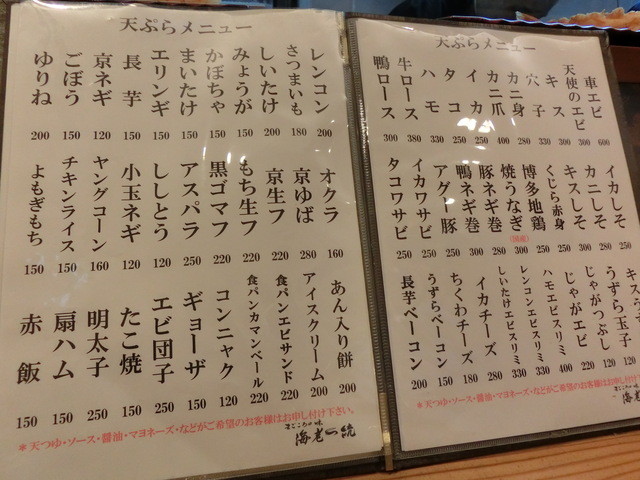 天ぷらメニュー
車エビ 600
天使のエビ 300
キス 300
穴子 300
カニ身 280
カニ爪 400
イカ 250
タコ 250
ハモ 330
牛ロース 380
鴨ロース 300
イカしそ 250
カニしそ 250
キスしそ 250
くじら赤身 250
博多地鶏 250
焼うなぎ(国産) 300
豚ネギ巻 280
鴨ネギ巻 300
アグー豚 250
イカワサビ 250
タコワサビ 250
うずら玉子 120
じゃがつぶし 120
じゃがエビ 220
ハモエビスリミ 400
レンコンエビスリミ 330
しいたけエビスリミ 330
イカチーズ 300
ちくわチーズ 180
うずらベーコン 150
長芋ベーコン 200
*天つゆ・ソース・醤油・マヨネーズ・などがご希望のお客様はお申し付け
天ぷらメニュー
レンコン 200
さつまいも 180
しいたけ 200
みょうが 150
かぼちゃ 150
まいたけ 150
エリンギ 150
長芋 150
京ネギ 120
ごぼう 150
ゆりね 200
オクラ 160
京ゆば 280
京生フ 220
もち生フ 220
黒ゴマフ 220
アスパラ 250
ししとう 120
小玉ネギ 120
ヤングコーン 160
チキンライス 150
よもぎもち 150
あん入り餅 200
アイスクリーム 200
食パンエビサンド 220
食パンカマンベール 220
コンニャク 120
ギョーザ 150
エビ団子 250
たこ焼 150
明太子 250
扇ハム 150
赤飯 150
*天つゆ・ソース・醤油・マヨネーズ・などがご希望のお客様はお申し付け下さい。
まごころの味
海老一筋